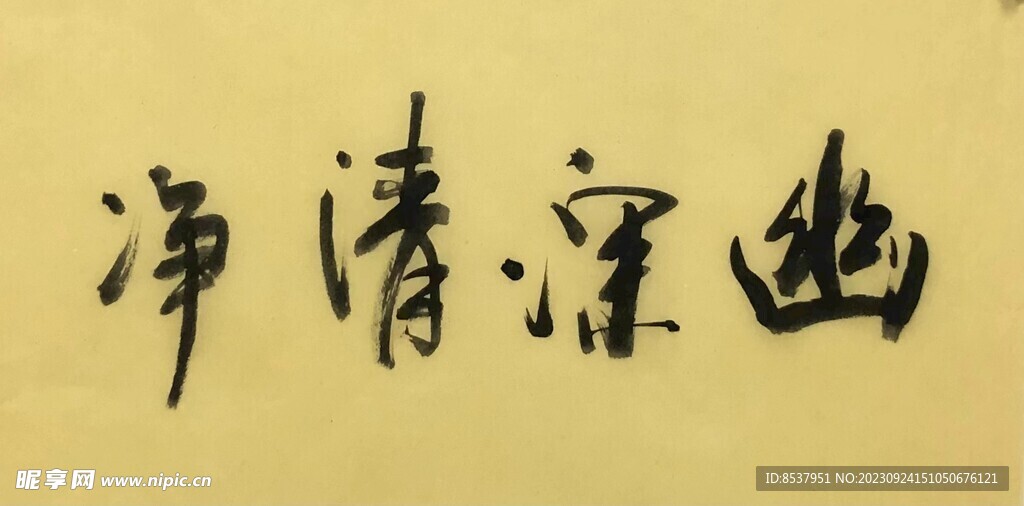 幽深清净
昵享网 www.nipic.cn
ID:8537951 NO:20230924151050676121